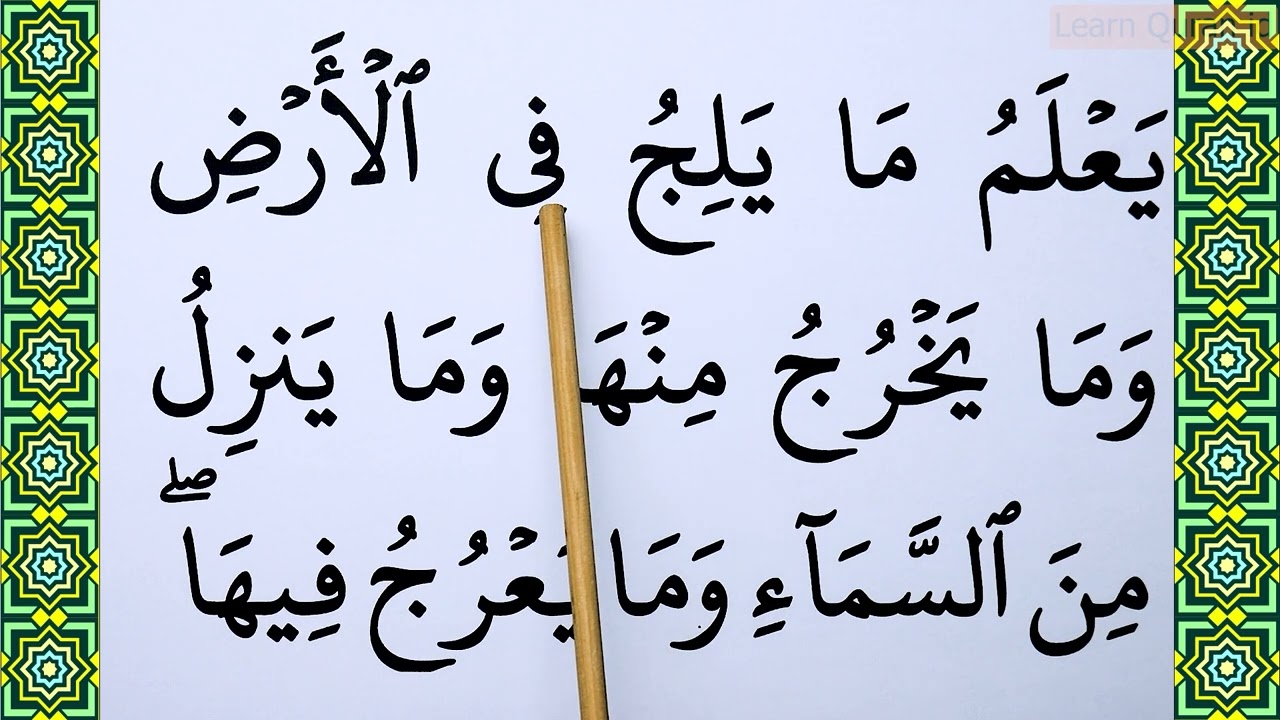 Learn Quran.id
يَعۡلَمُ مَا يَلِجُ فِي ٱلۡأَرۡضِ
وَمَا يَخۡرُجُ مِنۡهَا وَمَا يَنزِلُ
مِنَ ٱلسَّمَآءِ وَمَا يَعۡرُجُ فِيهَاۖ